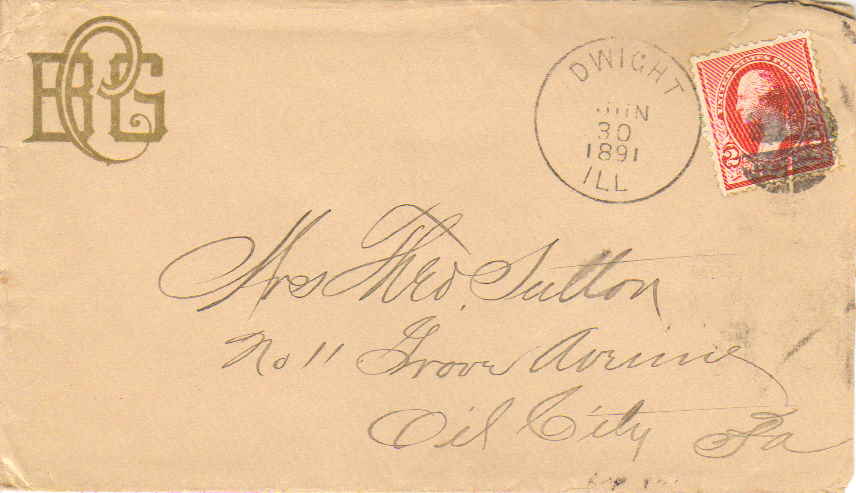 DWIGHT
JUN
30
1891
ILL
UNITED STATES POSTAGE
2
Mrs Theo. Sutton
No 11 Grove Avenue
Oil City Pa